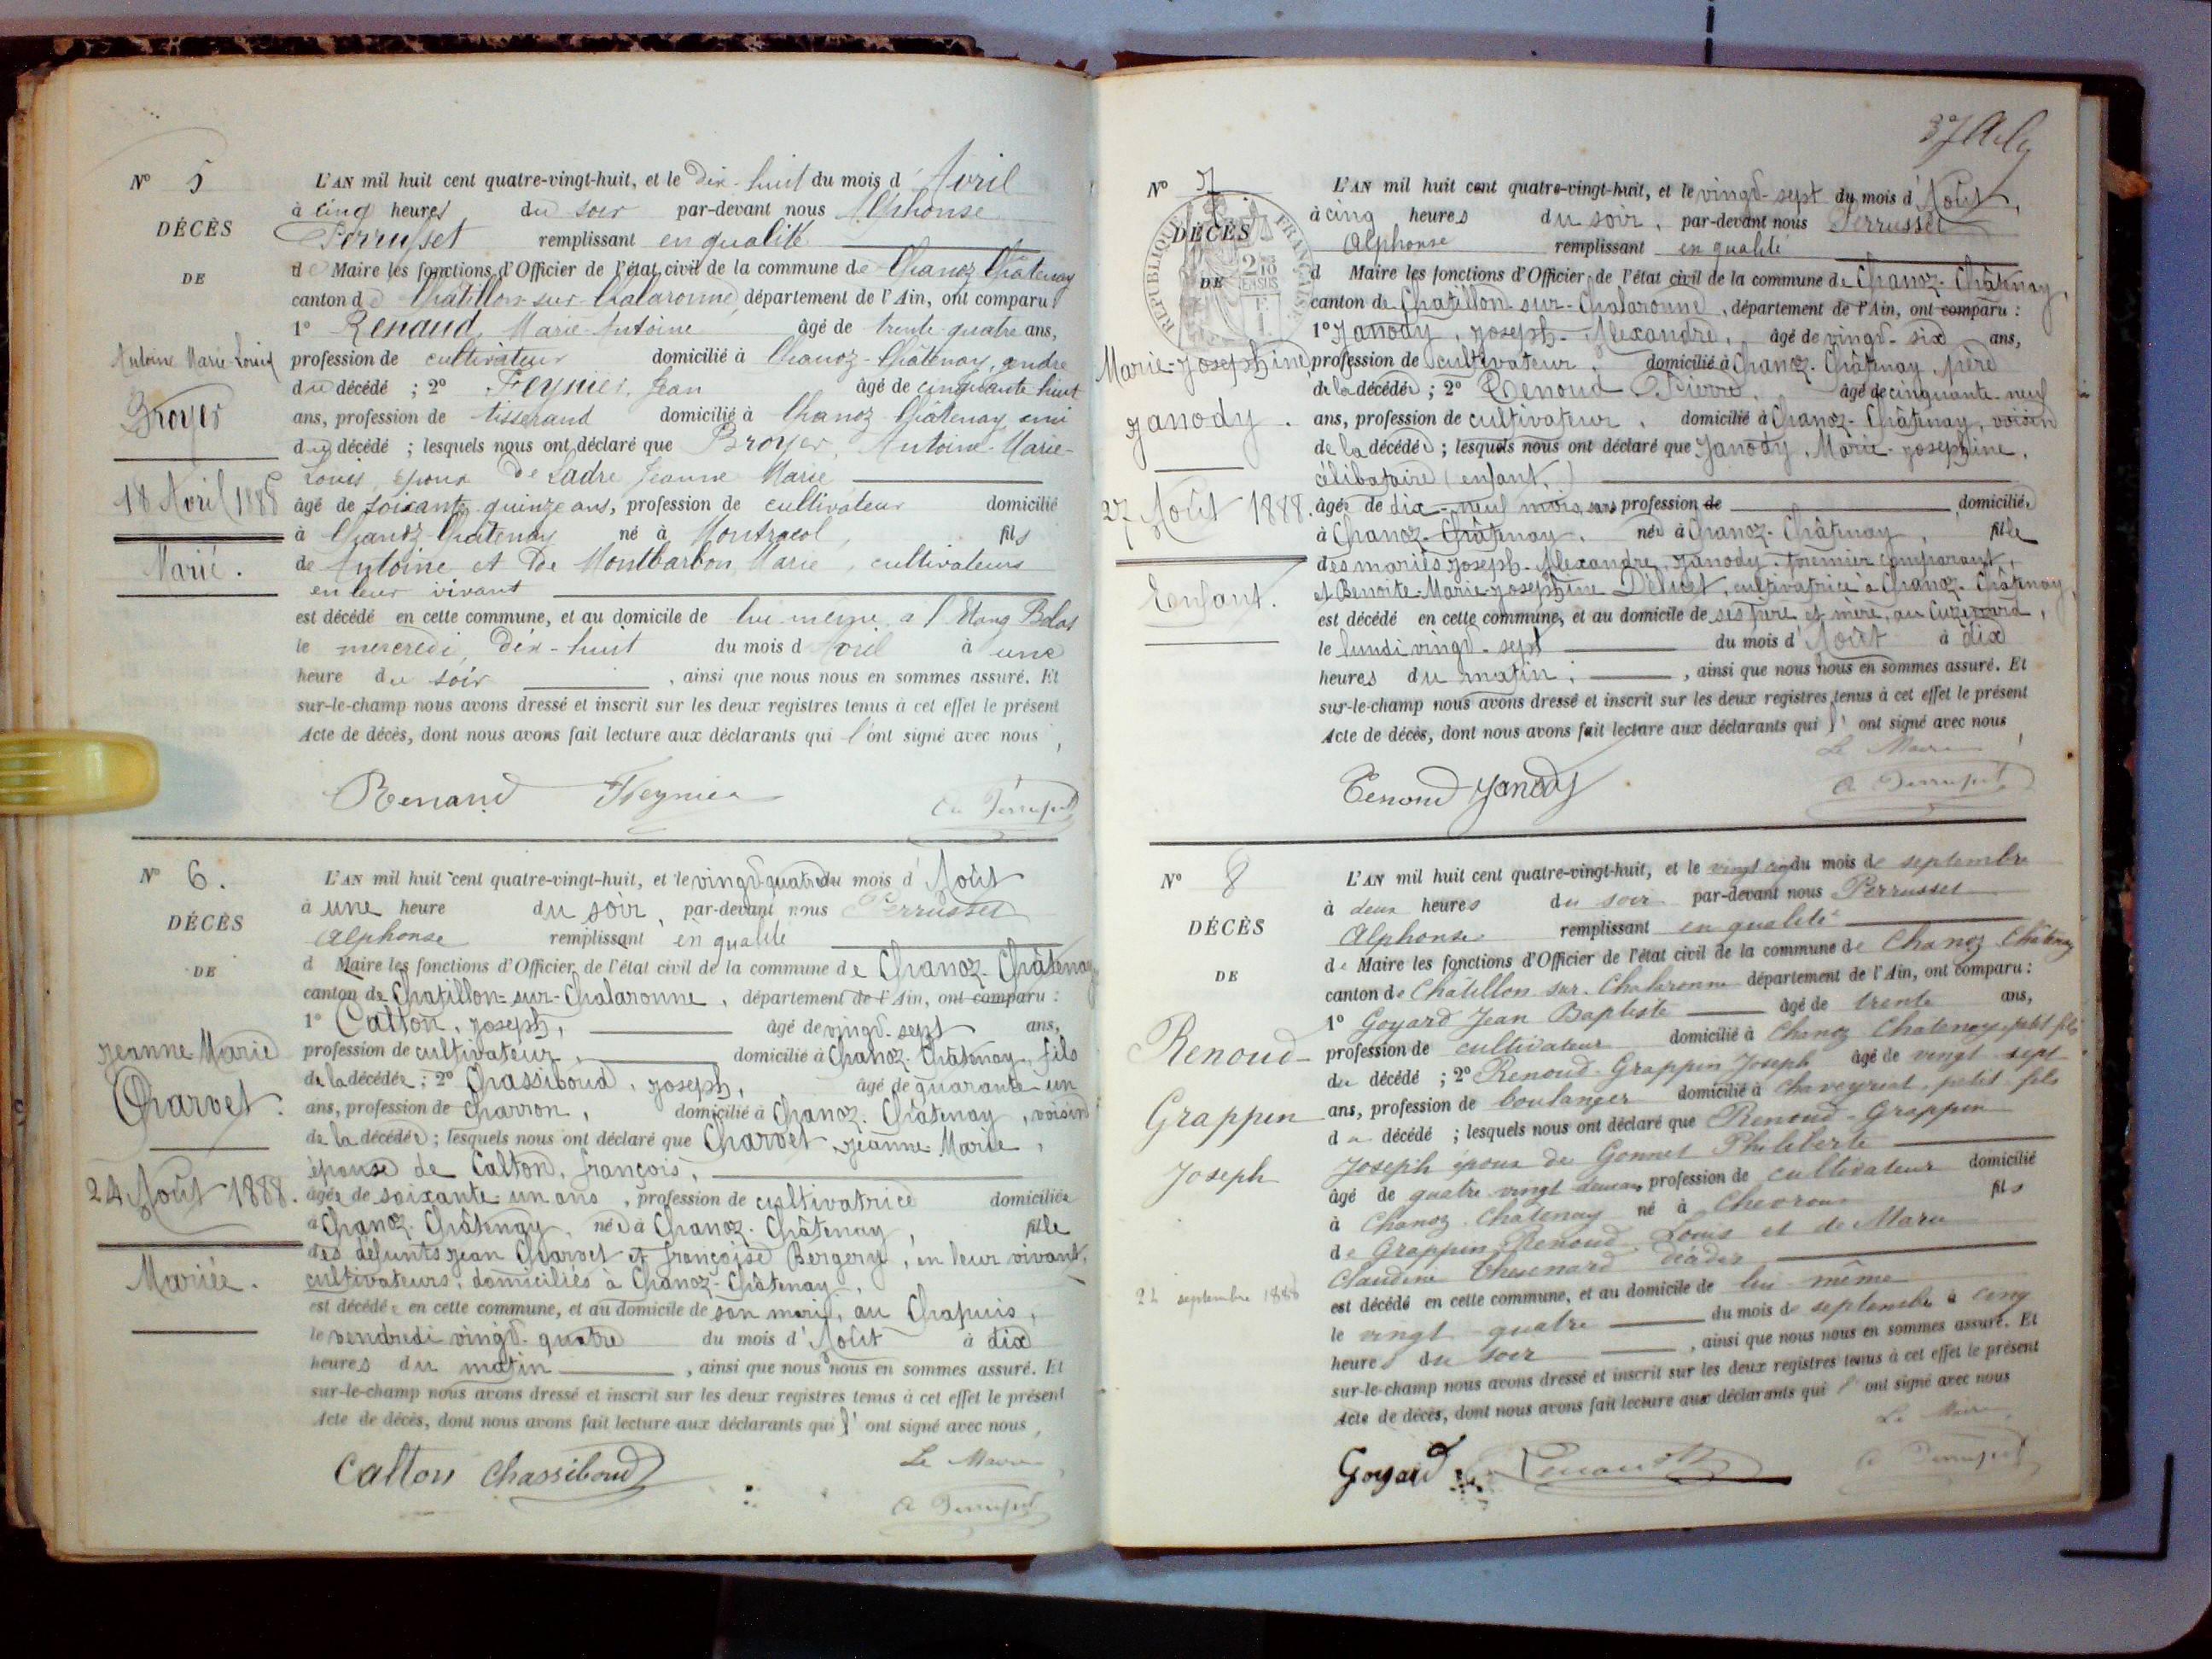 N° 5
DÉCÈS
DE
Antoine Marie-Louis
Broyer
18 Avril 1888
Marié.
L'AN mil huit cent quatre-vingt-huit, et le Dix-huit du mois d'Avril
à cinq heures du soir par-devant nous Alphonse
Perrusset remplissant en qualité
de Maire les fonctions d'Officier de l'état civil de la commune de Chanoz Châtenay
canton de Châtillon-sur-Chalaronne, département de l'Ain, ont comparu:
1° Renaud, Marie Antoine âgé de trente quatre ans,
profession de cultivateur domicilié à Chanoz-Châtenay, gendre
du décédé ; 2° Feynier, Jean âgé de cinquante huit
ans, profession de tisserand domicilié à Chanoz Châtenay, ami
du décédé ; lesquels nous ont déclaré que Broyer, Antoine-Marie-
Louis, époux de Ladre Jeanne Marie
âgé de soixante quinze ans, profession de cultivateur domicilié
à Chanoz-Châtenay né à Montracol, fils
de Antoine et de Montbarbon, Marie, cultivateurs
en leur vivant
est décédé en cette commune, et au domicile de lui même, à l'Etang
le mercredi, dix-huit du mois d'Avril à une
heure du soir, ainsi que nous nous en sommes assuré. Et
sur-le-champ nous avons dressé et inscrit sur les deux registres tenus à cet effet le présent
Acte de décès, dont nous avons fait lecture aux déclarants qui l'ont signé avec nous,
Renaud Feynier A Perrusset
N° 6.
DÉCÈS
DE
Jeanne Marie
Charvet.
24 Août 1888.
Mariée.
L'AN mil huit cent quatre-vingt-huit, et le vingt-quatre du mois d'Août
à une heure du soir, par-devant nous Perrusset
Alphonse remplissant en qualité
d Maire les fonctions d'Officier de l'état civil de la commune de Chanoz-Châtenay
canton de Chatillon-sur-Chalaronne, département de l'Ain, ont comparu:
1° Catton, Joseph, âgé de vingt-sept ans,
profession de cultivateur, domicilié à Chanoz-Châtenay, fils
de la décédée ; 2° Chassiboud, Joseph, âgé de quarante-un
ans, profession de Charron, domicilié à Chanoz-Châtenay, voisin
de la décédée ; lesquels nous ont déclaré que Charvet Jeanne Marie,
épouse de Catton, françois,
âgée de soixante-un ans, profession de cultivatrice domiciliée
à Chanoz-Châtenay, née à Chanoz-Châtenay, fille
des défunts Jean Charvet et françoise Bergery, en leur vivant,
cultivateurs, domiciliés à Chanoz-Châtenay,
est décédée en cette commune, et au domicile de son mari, au Chapuis,
le vendredi vingt-quatre du mois d'Août à dix
heures du matin, ainsi que nous nous en sommes assuré. Et
sur-le-champ nous avons dressé et inscrit sur les deux registres tenus à cet effet le présent
Acte de décès, dont nous avons fait lecture aux déclarants qui l'ont signé avec nous,
Catton Chassiboud Le Maire
A Perrusset
37
N° 7
RÉPUBLIQUE FRANÇAISE
DÉCÈS
DE
Marie-Josephine
Janody.
27 Août 1888.
Enfant.
L'AN mil huit cent quatre-vingt-huit, et le vingt-sept du mois d'Août,
à cinq heures du soir, par-devant nous Perrusset
Alphonse remplissant en qualité
d Maire les fonctions d'Officier de l'état civil de la commune de Chanoz-Châtenay,
canton de Chatillon-sur-Chalaronne, département de l'Ain, ont comparu:
1° Janody, Joseph-Alexandre, âgé de vingt-six ans,
profession de cultivateur, domicilié à Chanoz-Châtenay, père
de la décédée ; 2° Renoud Pierre, âgé de cinquante-neuf
ans, profession de cultivateur, domicilié à Chanoz-Châtenay, voisin
de la décédée ; lesquels nous ont déclaré que Janody, Marie-Josephine,
célibataire (enfant,)
âgée de dix-neuf mois, sans profession de domiciliée
à Chanoz-Châtenay, née à Chanoz-Châtenay, fille
des mariés Joseph-Alexandre Janody, premier comparant,
et Benoite-Marie-Josephine, cultivatrice à Chanoz-Châtenay,
est décédé en cette commune, et au domicile de ses père et mère, au
le lundi vingt-sept du mois d'Août à dix
heures du matin, ainsi que nous nous en sommes assuré. Et
sur-le-champ nous avons dressé et inscrit sur les deux registres tenus à cet effet le présent
Acte de décès, dont nous avons fait lecture aux déclarants qui l'ont signé avec nous,
Le Maire
Renoud Janody A Perrusset
N° 8
DÉCÈS
DE
Renoud-
Grappin
Joseph
24 septembre 1888
L'AN mil huit cent quatre-vingt-huit, et le vingt cinq du mois de septembre
à deux heures du soir par-devant nous Perrusset
Alphonse remplissant en qualité
de Maire les fonctions d'Officier de l'état civil de la commune de Chanoz Châtenay
canton de Châtillon sur Chalaronne département de l'Ain, ont comparu:
1° Goyard Jean Baptiste âgé de trente ans,
profession de cultivateur domicilié à Chanoz Châtenay, petit fils
du décédé ; 2° Renoud-Grappin Joseph âgé de vingt sept
ans, profession de boulanger domicilié à Chaveyriat, petit fils
du décédé ; lesquels nous ont déclaré que Renoud-Grappin
Joseph époux de Gonnet Philiberte
âgé de quatre vingt deux ans, profession de cultivateur domicilié
à Chanoz Châtenay né à Chevroux fils
de Grappin Renoud Louis et de Marie
Claudine décédés
est décédé en cette commune, et au domicile de lui-même
le vingt quatre du mois de septembre à cinq
heures du soir, ainsi que nous nous en sommes assuré. Et
sur-le-champ nous avons dressé et inscrit sur les deux registres tenus à cet effet le présent
Acte de décès, dont nous avons fait lecture aux déclarants qui l'ont signé avec nous
Le Maire
Goyard Renoud A Perrusset